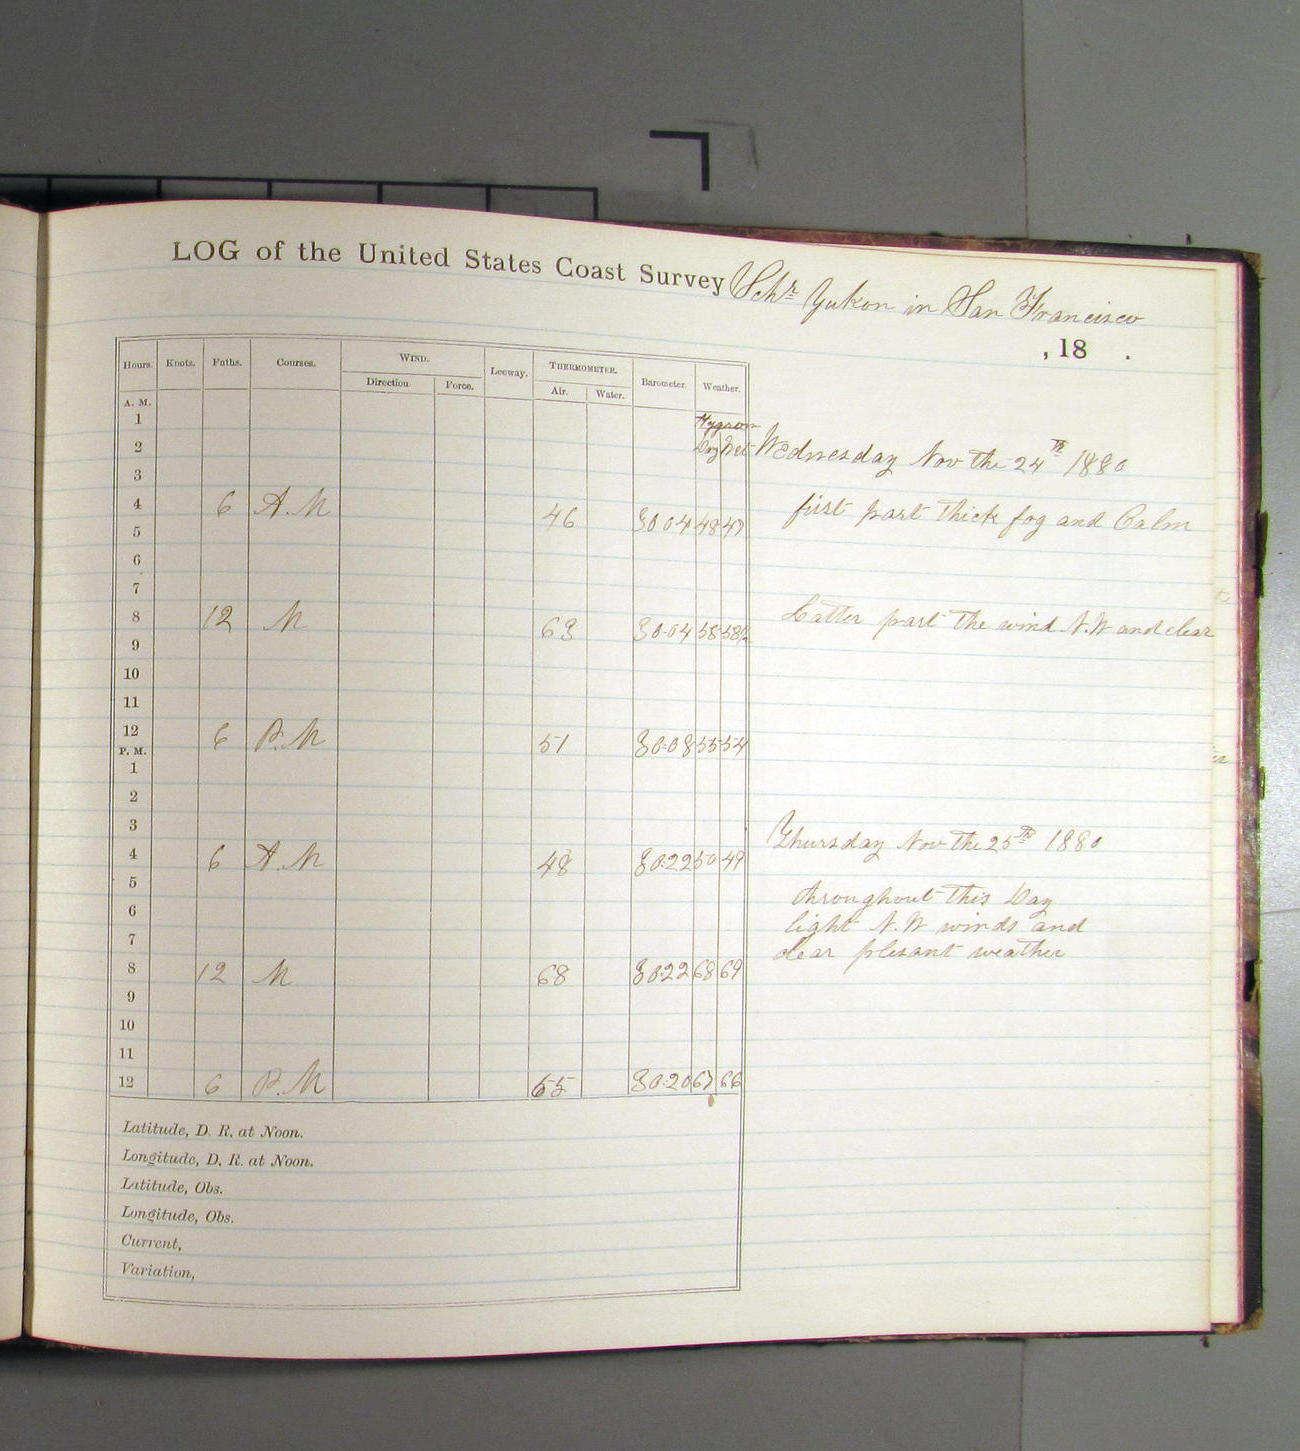 LOG of the United States Coast Survey Schr Yukon in San Francisco
, 18 .
Hours. Knots. Faths. Courses. WIND. Leeway. THERMOMETER. Barometer. Weather.
Direction Force. Air. Water.
A. M.
1 Hygrom
2 Dry Wet Wednesday Nov the 24th 1880
3
4 6 A.M 46 30 04 48 47 first part thick fog and Calm
5
6
7
8 12 M 63 30.04 58 58½ Latter part the wind N.W and clear
9
10
11
12 6 P.M 51 30.08 55 54
P. M.
1
2
3 Thursday Nov the 25th 1880
4 6 A.M 48 30.22 50 49
5 throughout this Day
6 light N.W winds and
7 clear plesant weather
8 12 M 68 30.22 68 69
9
10
11
12 6 P.M 55 30.20 67 66
Latitude, D. R. at Noon.
Longitude, D. R. at Noon.
Latitude, Obs.
Longitude, Obs.
Current,
Variation,